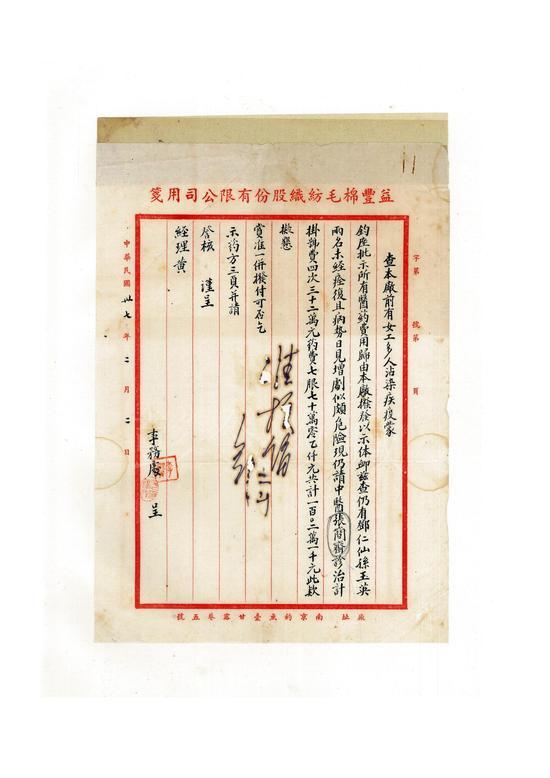 益豐棉毛紡織股份有限公司用箋
字第 號第 頁
查本廠前有女工多人沾染疾疫蒙
鈞座批示所有醫葯費用歸由本廠撥給以示体卹茲查仍有鄧仁仙孫玉英
兩名未經痊復且病勢日見增劇似頗危險現仍請中醫張簡齋診治計
掛號費四次三十二萬元葯費七服七十萬零乙仟元共計一百〇二萬一千元此款
擬懇
賞准一併撥付可否乞
示葯方三頁并請
詧核 謹呈
經理黃
事務處 呈
中華民國卅七年二月二日
廠址 南京釣魚臺甘露巷五號
11